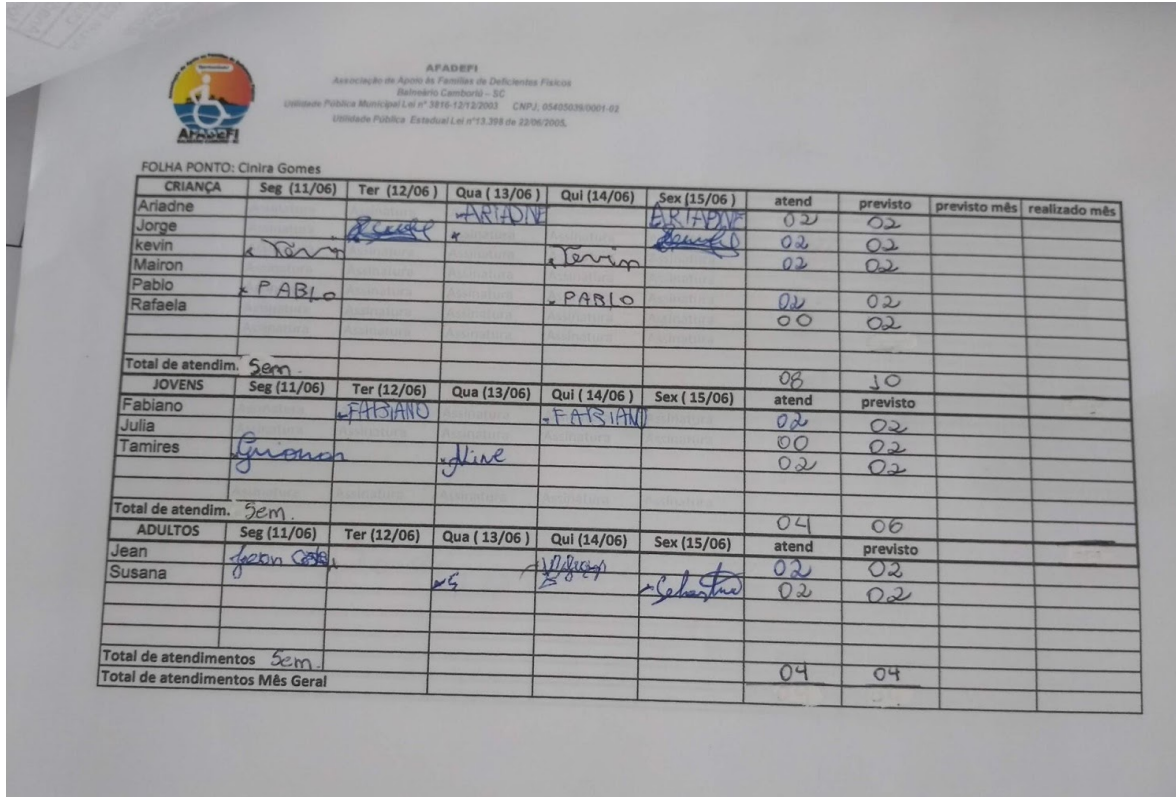 AFADEFI
Associação de Apoio às Famílias de Deficientes Físicos
Balneário Camboriú – SC
Utilidade Pública Municipal Lei nº 3816-12/12/2003 CNPJ, 05405039/0001-02
Utilidade Pública Estadual Lei nº13.398 de 22/06/2005.
AFADEFI
FOLHA PONTO: Cinira Gomes
CRIANÇA Seg (11/06) Ter (12/06 ) Qua ( 13/06 ) Qui (14/06) Sex (15/06 ) atend previsto previsto mês realizado mês
Ariadne ARIADNE ARIADNE 02 02
Jorge 02 02
kevin Kevin 02 02
Mairon
Pablo PABLO PABLO 02 02
Rafaela 00 02
Total de atendim. Sem. 08 10
JOVENS Seg (11/06) Ter (12/06) Qua (13/06) Qui ( 14/06) Sex ( 15/06) atend previsto
Fabiano FABIANO FABIANO 02 02
Julia 00 02
Tamires Aline 02 02
Total de atendim. Sem. 04 06
ADULTOS Seg (11/06) Ter (12/06) Qua ( 13/06) Qui (14/06) Sex (15/06) atend previsto
Jean Jean 02 02
Susana 02 02
Total de atendimentos Sem. 04 04
Total de atendimentos Mês Geral